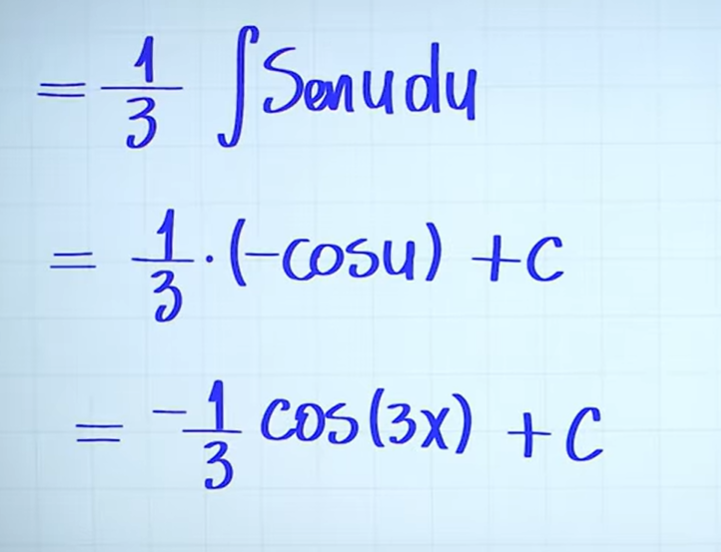 = 1/3 ∫Senudu
= 1/3 · (-cosu) + C
= -1/3 cos(3x) + C